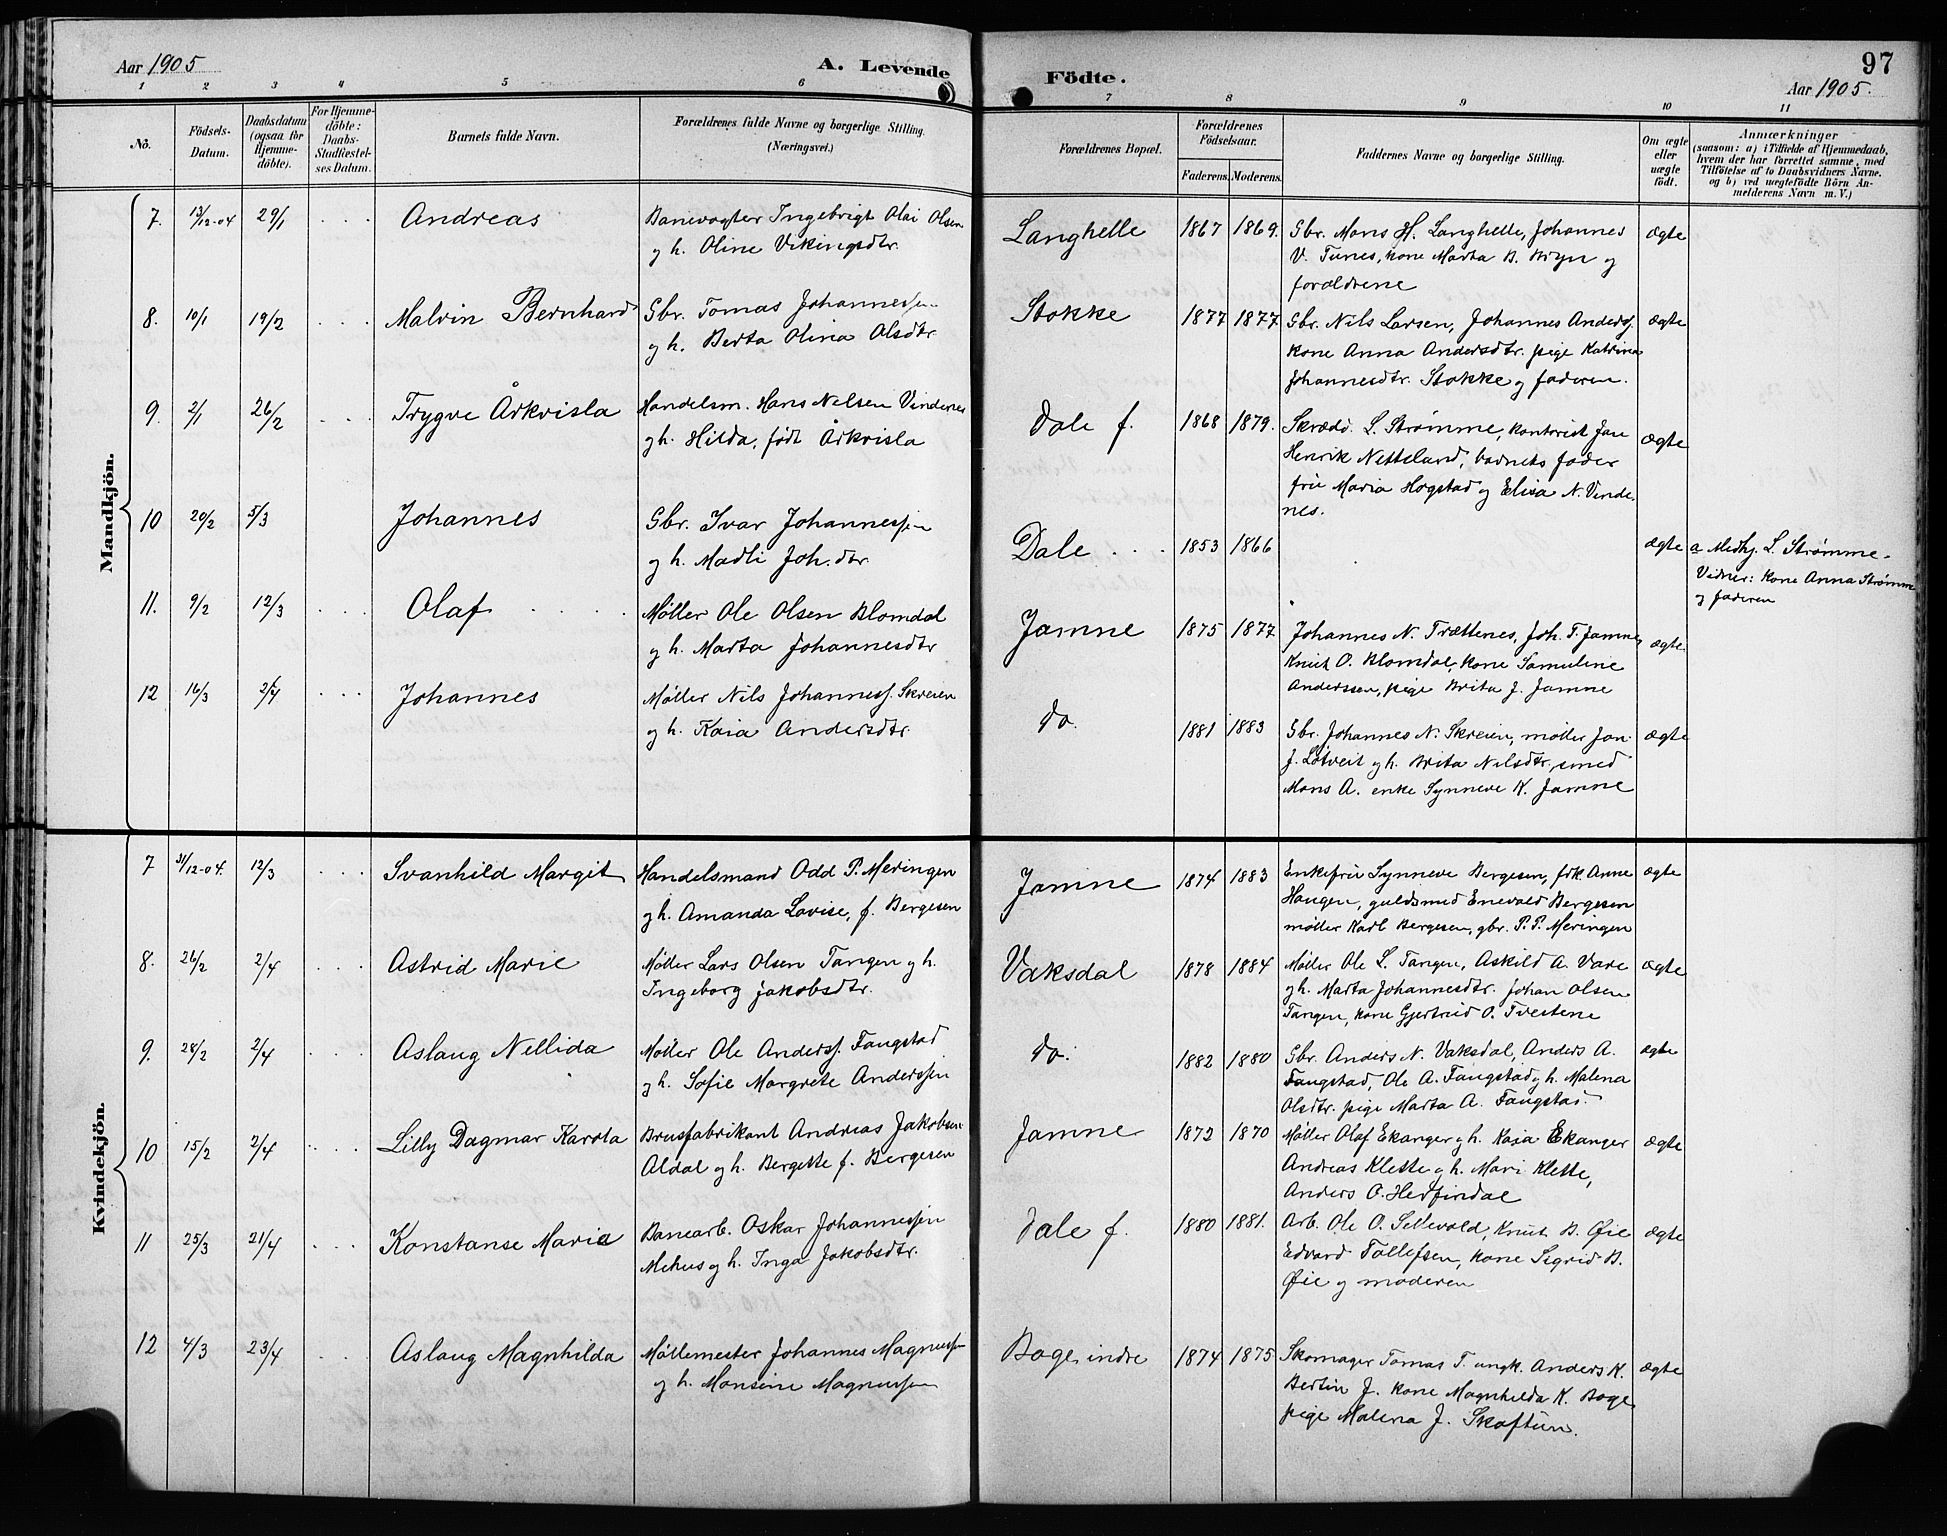 Aar 1905
A. Levende
Födte.
97
Aar 1905.
1 2 3 4 5 6 7 8 9 10 11
No.
Födsels-Datum.
Daabsdatum (ogsaa for Hjemme-döbte).
For Hjemme-döbte: Daabs-Stadfæstel-ses Datum.
Barnets fulde Navn.
Forældrenes fulde Navne og borgerlige Stilling.
(Næringsvei.)
Forældrenes Bopæl.
Forældrenes Födselsaar.
Faderens. Moderens.
Faddernes Navne og borgerlige Stilling.
Om ægte eller uægte födt.
Anmærkninger
(saasom: a) i Tilfælde af Hjemmedaab,
hvem der har forrettet samme, med
Tilföielse af to Daabsvidners Navne.
og b) ved uægtefödte Börn An-
melderens Navn m. V.)
Mandkjön.
7. 13/12-04 29/1 Andreas
Banevogter Ingebrigt Olai Olsen
og h. Oline Vikingsdtr.
Langhelle 1867 1869.
Gbr. Mons H. Langhelle, Johannes
V. Tunes, kone Marta B. Bryn og
forældrene
ægte
8. 10/1 19/2 Malvin Bernhard
Gbr. Tomas Johannessen
og h. Berta Olina Olsdtr.
Stokke 1877 1877
Gbr. Nils Larsen, Johannes Anderss.
kone Anna Andersdtr. pige Katrina
Johannesdtr. Stokke og faderen.
ægte
9. 2/1 26/2 Trygve Årkvisla
Handelsm. Hans Nilsen Vindenes
og h. Hilda, født Årkvisla
Dale f. 1868 1879.
Skrædd. L. Strømme, kontorist Jan
Henrik Netteland, barnets fader
fru Maria Hogstad og Elisa N. Vinde
nes.
ægte
10 20/2 5/3 Johannes
Gbr. Ivar Johannessen
og h. Madli Joh.dtr.
Dale 1853 1866
ægte
a Medhj. L. Strømme.
Vidner: kone Anna Strømme
og faderen
11. 9/2 12/3 Olaf
Møller Ole Olsen Blomdal
og h. Marta Johannesdtr
Jamne 1875 1877.
Johannes N. Trættenes, Joh. T. Jamne,
Knut O. Blomdal, kone Samuline
Anderssen, pige Brita J. Jamne
ægte
12 16/3 2/4 Johannes
Møller Nils Johanness. Skreien
og h. Kaia Andersdtr.
do. 1881 1883
Gbr. Johannes N. Skreien, møller Jon
J. Lotveit og h. Brita Nilsdtr, smed
Mons A. enke Synneve K. Jamne
ægte
Kvindekjön.
7 31/12-04. 12/3 Svanhild Margit
Handelsmand Odd P. Meringen
og h. Amanda Lovise, f. Bergesen
Jamne 1874 1883
Enkefru Synneve Bergesen, frk. Anne
Haugen, guldsmed Enevald Bergesen
møller Karl Bergesen, gbr. P. P. Meringen
ægte
8. 26/2 2/4 Astrid Marie
Møller Lars Olsen Tangen og h.
Ingeborg Jakobsdtr.
Vaksdal 1878 1884
Møller Ole L. Tangen, Askild A. Vare
og h. Marta Johannesdtr. Johan Olsen
Tangen, kone Gjertrud O. Tveitene
ægte
9. 28/2 2/4 Aslaug Nellida
Møller Ole Anderss. Faugstad
og h. Sofie Margrete Anderssen
do. 1882 1880
Gbr. Anders N. Vaksdal, Anders A.
Faugstad, Ole A. Faugstad og h. Malena
Olsdtr. pige Marta A. Faugstad.
ægte
10 15/2 2/4 Lilly Dagmar Karota
Brusfabrikant Andreas Jakobsen
Aldal og h. Bergette f. Bergesen
Jamne 1872 1870
Møller Olaf Ekanger og h. Kaia Ekanger
Andreas Klette og h. Mari Klette,
Anders O. Herfindal
ægte
11 25/3 21/4 Konstanse Marie
Banearb. Oskar Johannessen
Mehus og h. Inga Jakobsdtr.
Dale f. 1880 1881.
Arb. Ole O. Sellevold, Knut B. Øie
Edvard Tollefsen, kone Sigrid B.
Øie og moderen
ægte
12 4/3 23/4 Aslaug Magnhilda
Møllemester Johannes Magnussen
og h. Monsine Magnussen
Boge, indre 1874 1875
Skomager Tomas T. ungk. Anders K.
Bertin J. kone Magnhilda K. Boge
pige Malena J. Skoftun.
ægte